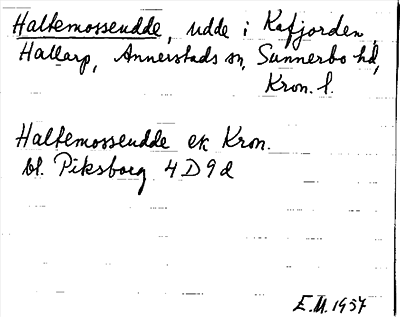 Haltemosseudde, udde i Kafjorden,
Hallarp, Annerstads sn, Sunnerbo hd,
Kron. l.
Haltemosseudde ek Kron.
bl. Piksborg 4D9d
E.M. 1957